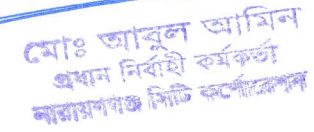 মোঃ আবুল আমিন
প্রধান নির্বাহী কর্মকর্তা
নারায়ণগঞ্জ সিটি কর্পোরেশন